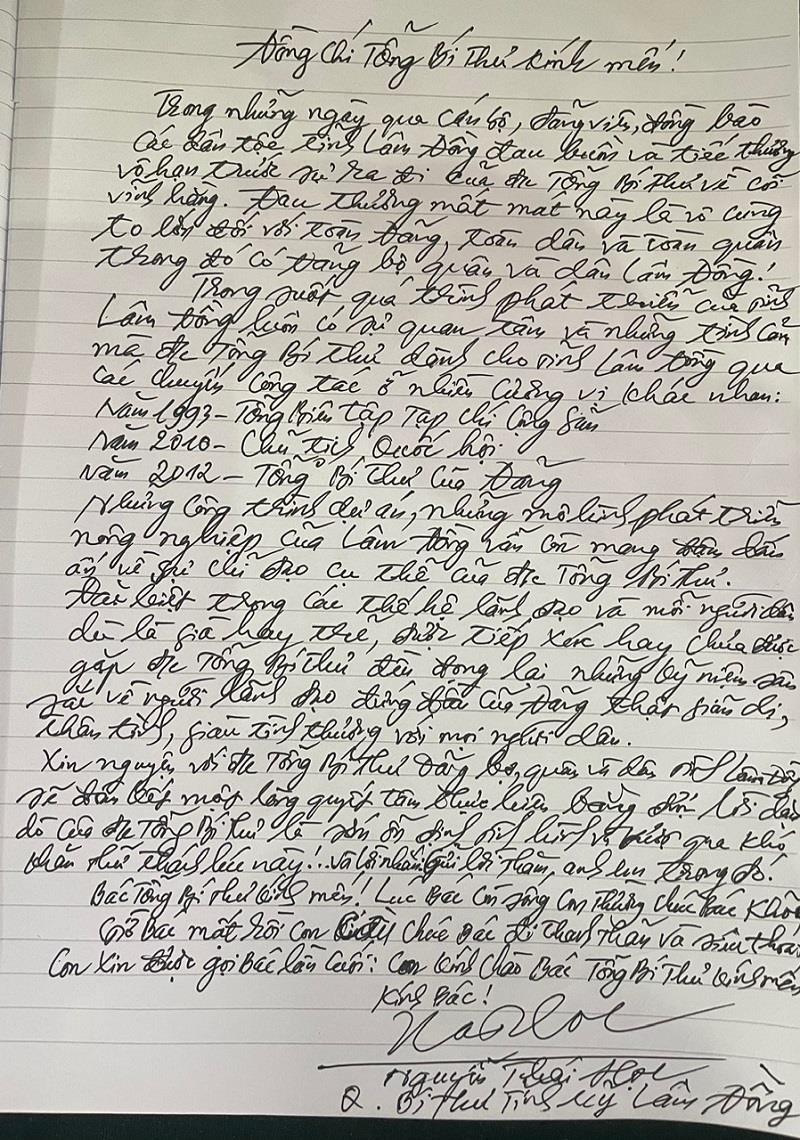 Đồng chí Tổng Bí Thư kính mến!
Trong những ngày qua cán bộ, đảng viên, đồng bào
các dân tộc tỉnh Lâm Đồng đau buồn và tiếc thương
vô hạn trước sự ra đi của đ/c Tổng Bí thư về cõi
vĩnh hằng. Đau thương mất mát này là vô cùng
to lớn đối với toàn Đảng, toàn dân và toàn quân
trong đó có Đảng bộ quân và dân Lâm Đồng!
Trong suốt quá trình phát triển của tỉnh
Lâm Đồng luôn có sự quan tâm và những tình cảm
mà đ/c Tổng Bí thư dành cho tỉnh Lâm Đồng qua
các chuyến công tác ở nhiều cương vị khác nhau:
Năm 1993 - Tổng Biên tập Tạp chí Cộng sản
Năm 2010 - Chủ tịch Quốc hội
Năm 2012 - Tổng Bí thư của Đảng
Những công trình dự án, những mô hình phát triển
nông nghiệp của Lâm Đồng vẫn còn mang đậm dấu
ấn về sự chỉ đạo cụ thể của đ/c Tổng Bí thư.
Đặc biệt trong các thế hệ lãnh đạo và mỗi người dân
dù là già hay trẻ, được tiếp xúc hay chưa được
gặp đ/c Tổng Bí thư đều đọng lại những kỷ niệm sâu
sắc về người lãnh đạo đứng đầu của Đảng thật giản dị,
thân tình, giàu tình thương với mọi người dân.
Xin nguyện với đ/c Tổng Bí thư Đảng bộ, quân và dân tỉnh Lâm Đồng
sẽ đoàn kết một lòng quyết tâm thực hiện bằng được lời dặn
dò của đ/c Tổng Bí thư là sớm ổn định tình hình và vượt qua khó
khăn thử thách lúc này!.. và lời nhắn gửi lời thăm, anh em trong đó.
Bác Tổng Bí thư kính mến! Lúc Bác còn sống con thường chúc Bác khỏe
Giờ Bác mất rồi con chúc Bác đi thanh thản và siêu thoát
Con xin được gọi Bác lần cuối: Con kính chào Bác Tổng Bí thư kính mến
Kính Bác!
Nguyễn Thái Học
Q. Bí thư Tỉnh ủy Lâm Đồng